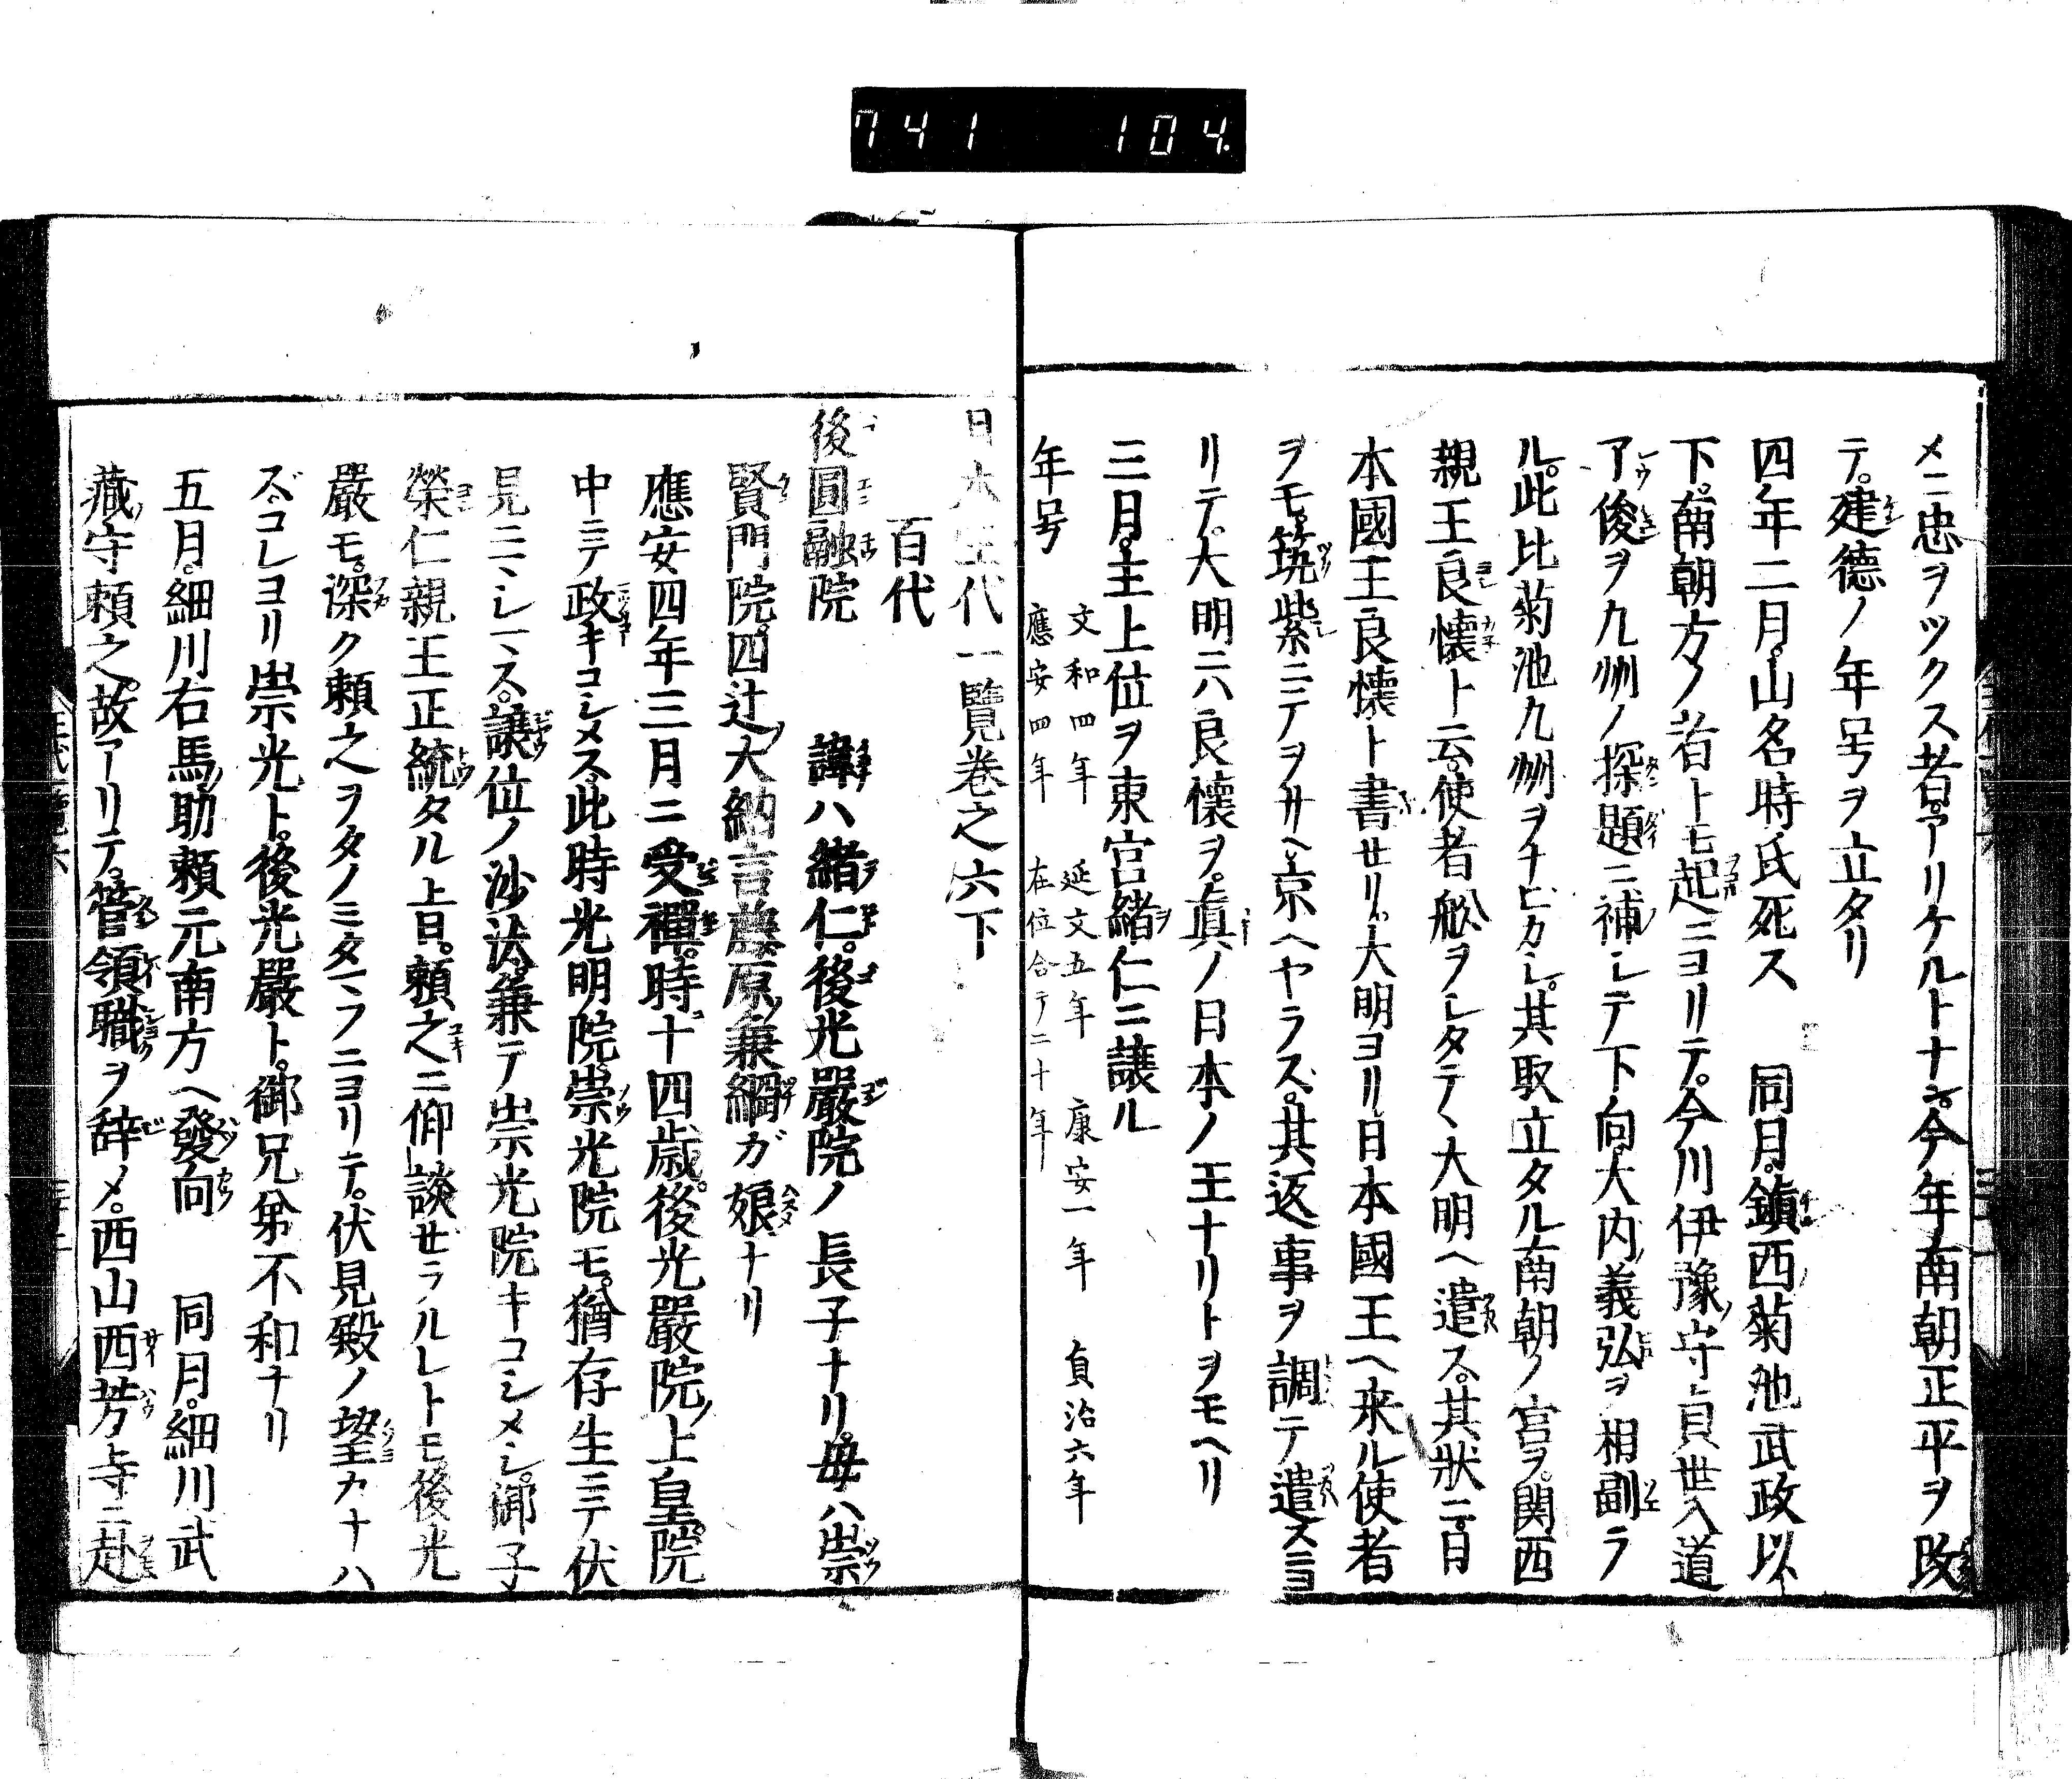 741 104
メニ忠ヲツクス者アリケルトナン。今年南朝正平ヲ改
テ。建德ノ年号ヲ立タリ
四年二月。山名時氏死ス 同月。鎮西菊池武政以
下。南朝方ノ者トモ起ニヨリテ。今川伊豫守貞世入道
了俊ヲ九州ノ探題ニ補シテ下向。大内義弘ヲ相副ラ
ル。此比菊池九州ヲナヒカシ。其取立タル南朝ノ宮ヲ。関西
親王良懐ト云。使者舩ヲシタテヽ大明ヘ遣ス。其狀ニ。日
本國王良懐ト書セリ。大明ヨリ日本國王ヘ來ル使者
ヲモ。筑紫ニテヲサヘ京ヘヤラス。其返事ヲ調テ遣スニヨ
リテ。大明ニハ良懐ヲ。眞ノ日本ノ王ナリトヲモヘリ
三月。主上位ヲ東宮緒仁ニ讓ル
年号 文和四年 延文五年 康安一年 貞治六年
應安四年 在位合テ二十年
日本王代一覽巻之六下
百代
後圓融院 諱ハ緒仁。後光嚴院ノ長子ナリ。母ハ崇
賢門院。四辻大納言藤原兼綱ガ娘ナリ
應安四年三月ニ受禪。時十四歳。後光嚴院上皇院
中ニテ政キコシメス。此時光明院。崇光院モ。猶存生ニテ伏
見ニヽシマス。讓位ノ沙汰兼テ崇光院キコシメシ。御子
榮仁親王正統タル上日。頼之ニ仰談セラルレトモ後光
嚴モ。深ク頼之ヲタノミタマフニヨリテ。伏見殿ノ望カナハ
ズコレヨリ崇光ト。後光嚴ト。御兄弟不和ナリ
五月。細川右馬助頼元南方ヘ發向 同月。細川武
藏守頼之。故アリテ。管領職ヲ辞メ。西山西芳寺ニ赴